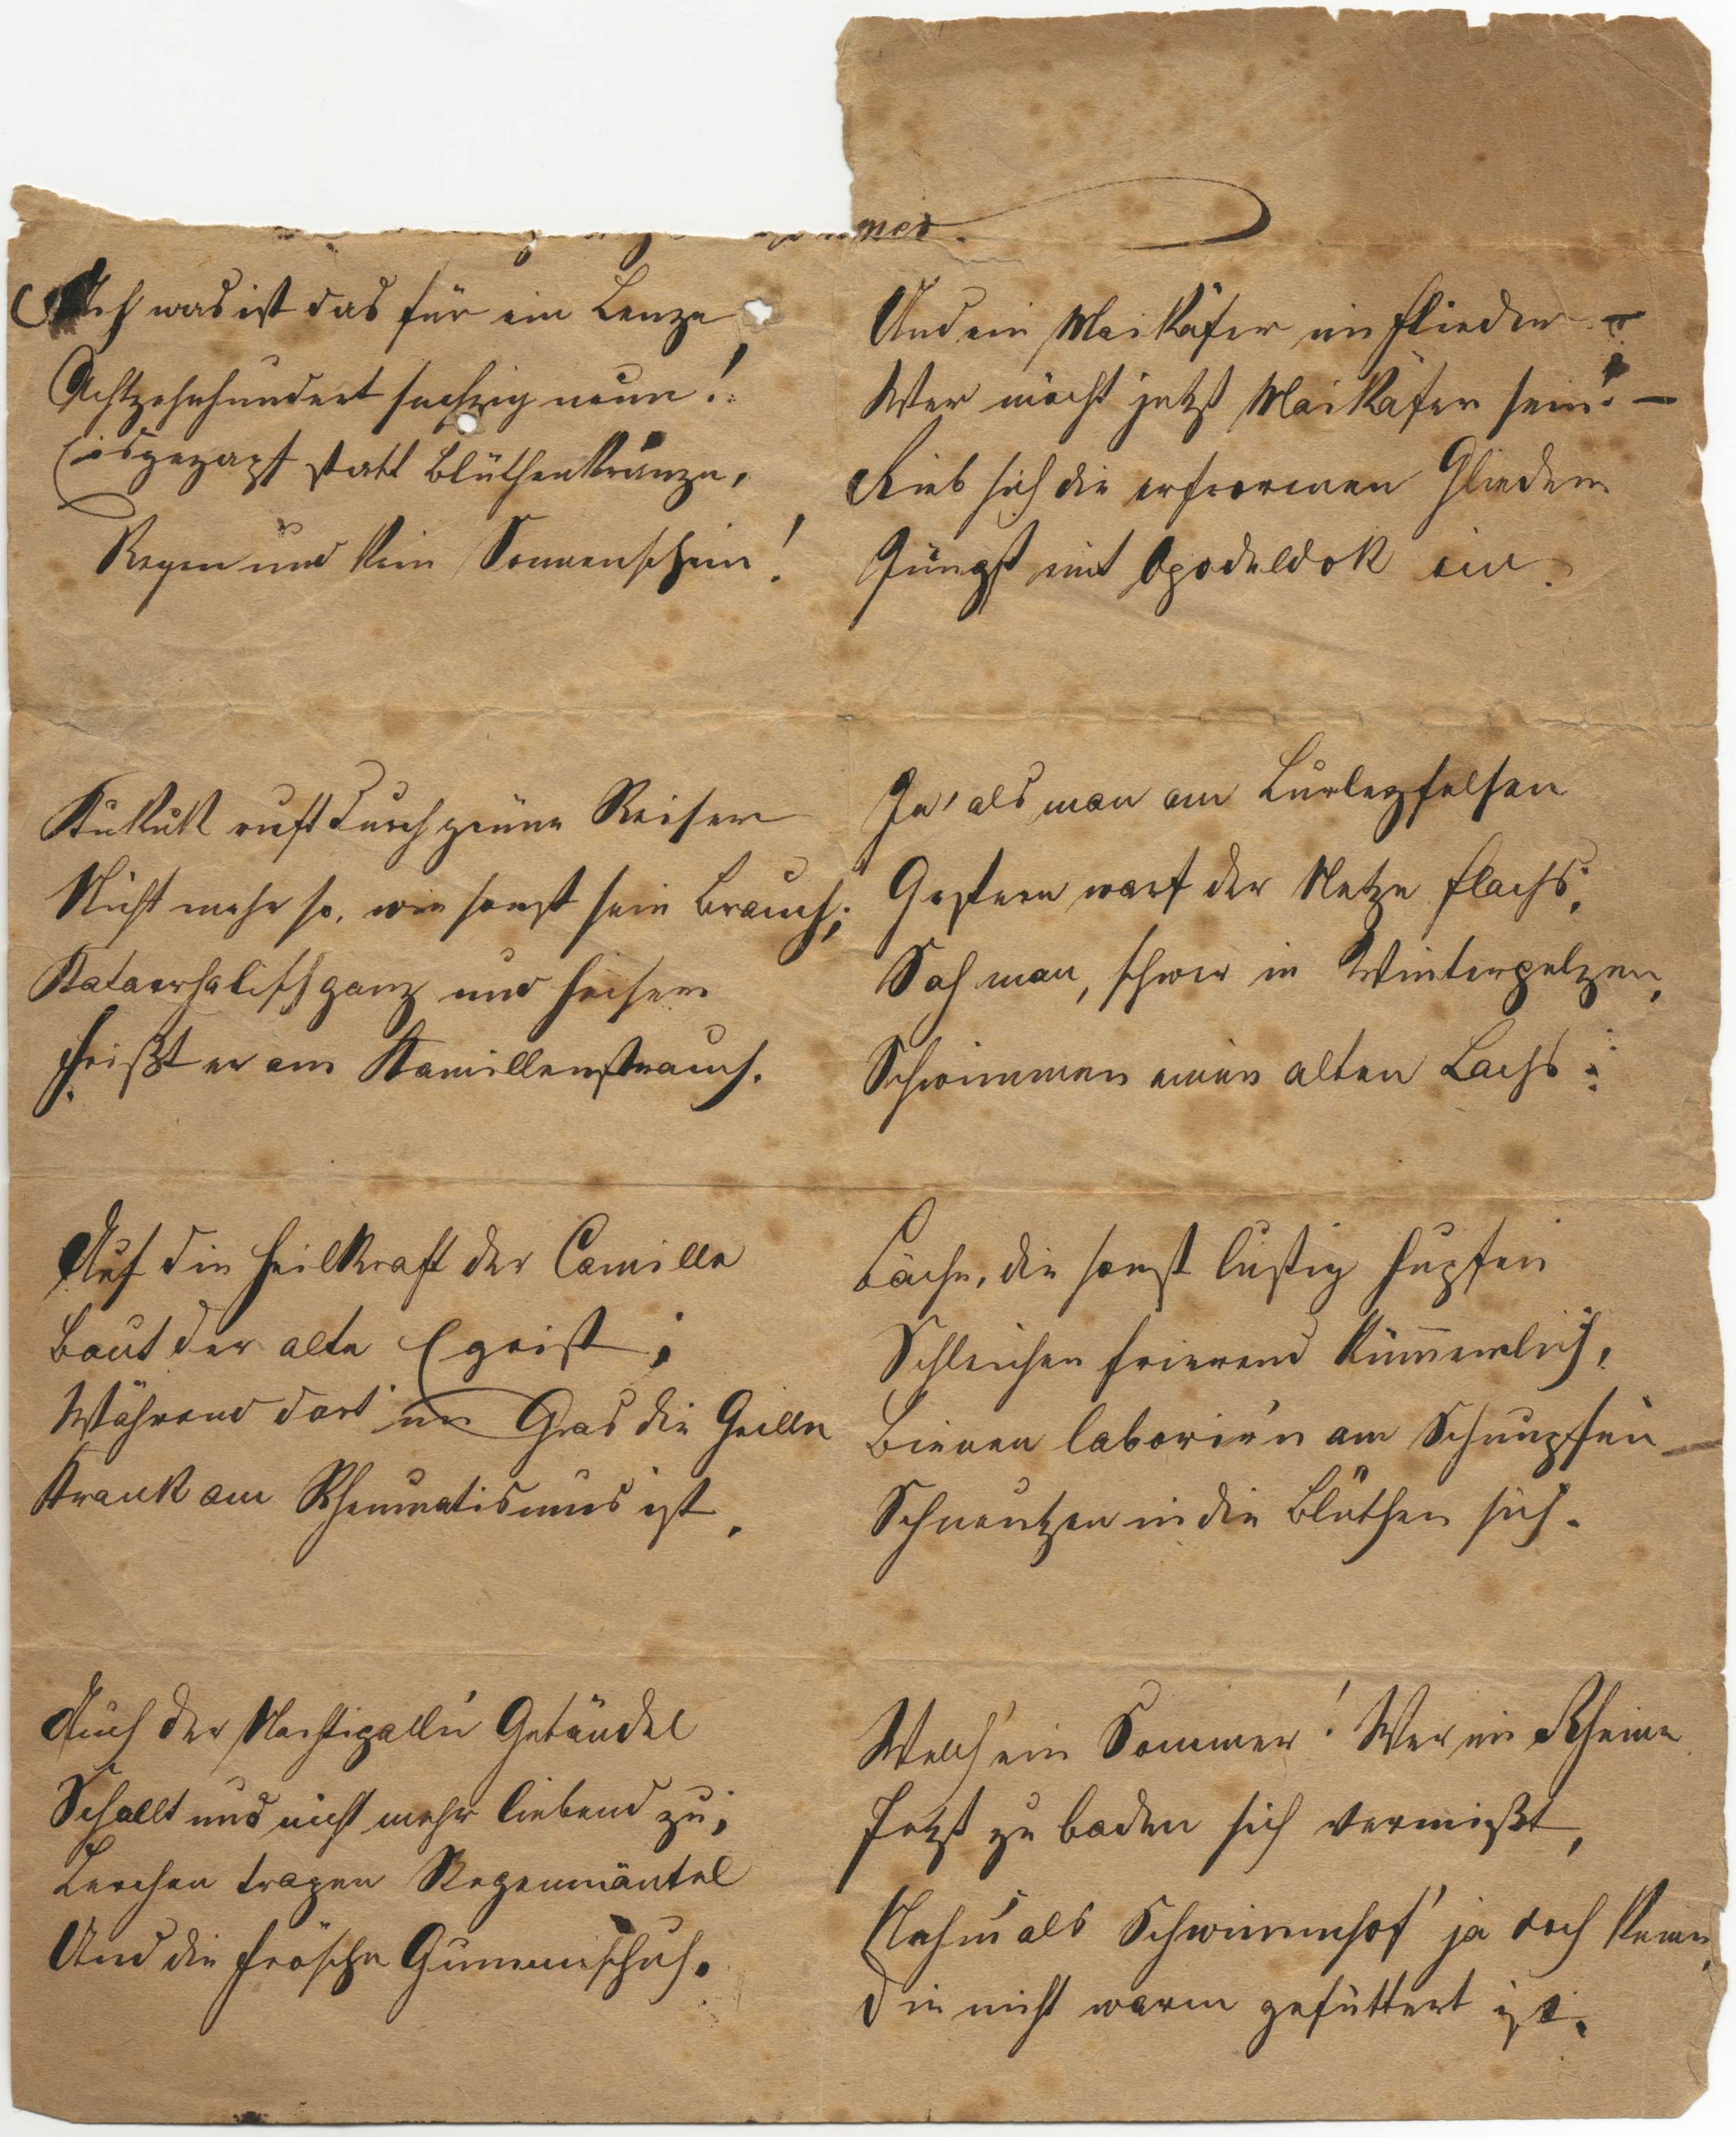 mer.
Ach was ist das für ein Lenze
Achtzehnhundert sechzig neun!
Eisgezapf statt Blüthenkränze,
Regen und kein Sonnenschein!
Kukuk ruft durch grüne Reiser
Nicht mehr so, wie sonst sein Brauch;
Katarrhalisch ganz und heiser
Heißt er am Kamillenstrauch.
Auf die Heilkraft der Camille
Baut der alte Egoist;
Während dort im Gras die Grille
Krank am Rheumatismus ist.
Auch der Nachtigall'n Getändel
Schallt uns nicht mehr liebend zu;
Lerchen tragen Regenmäntel
Und die Frösche Gummischuh.
Und ein Maikäfer im Flieder –
Wer möcht jetzt Maikäfer sein! –
Rieb sich die erfrornen Glieder
Jüngst mit Opodeldok ein.
Ja' als man am Lurleyfelsen
Gestern warf der Netze Flachs,
Sah man, schwer in Winterpelzen,
Schwimmen einen alten Lachs:
Bäche, die sonst lustig hupfen
Schleichen frierend kümmerlich,
Bienen laborir'n am Schnupfen
Schneutzen in die Blüthen sich.
Welch' ein Sommer! Wer im Rheine
Jetzt zu baden sich vermißt,
Nehm' als Schwimmhos' ja doch keine,
Die nicht warm gefüttert ist.